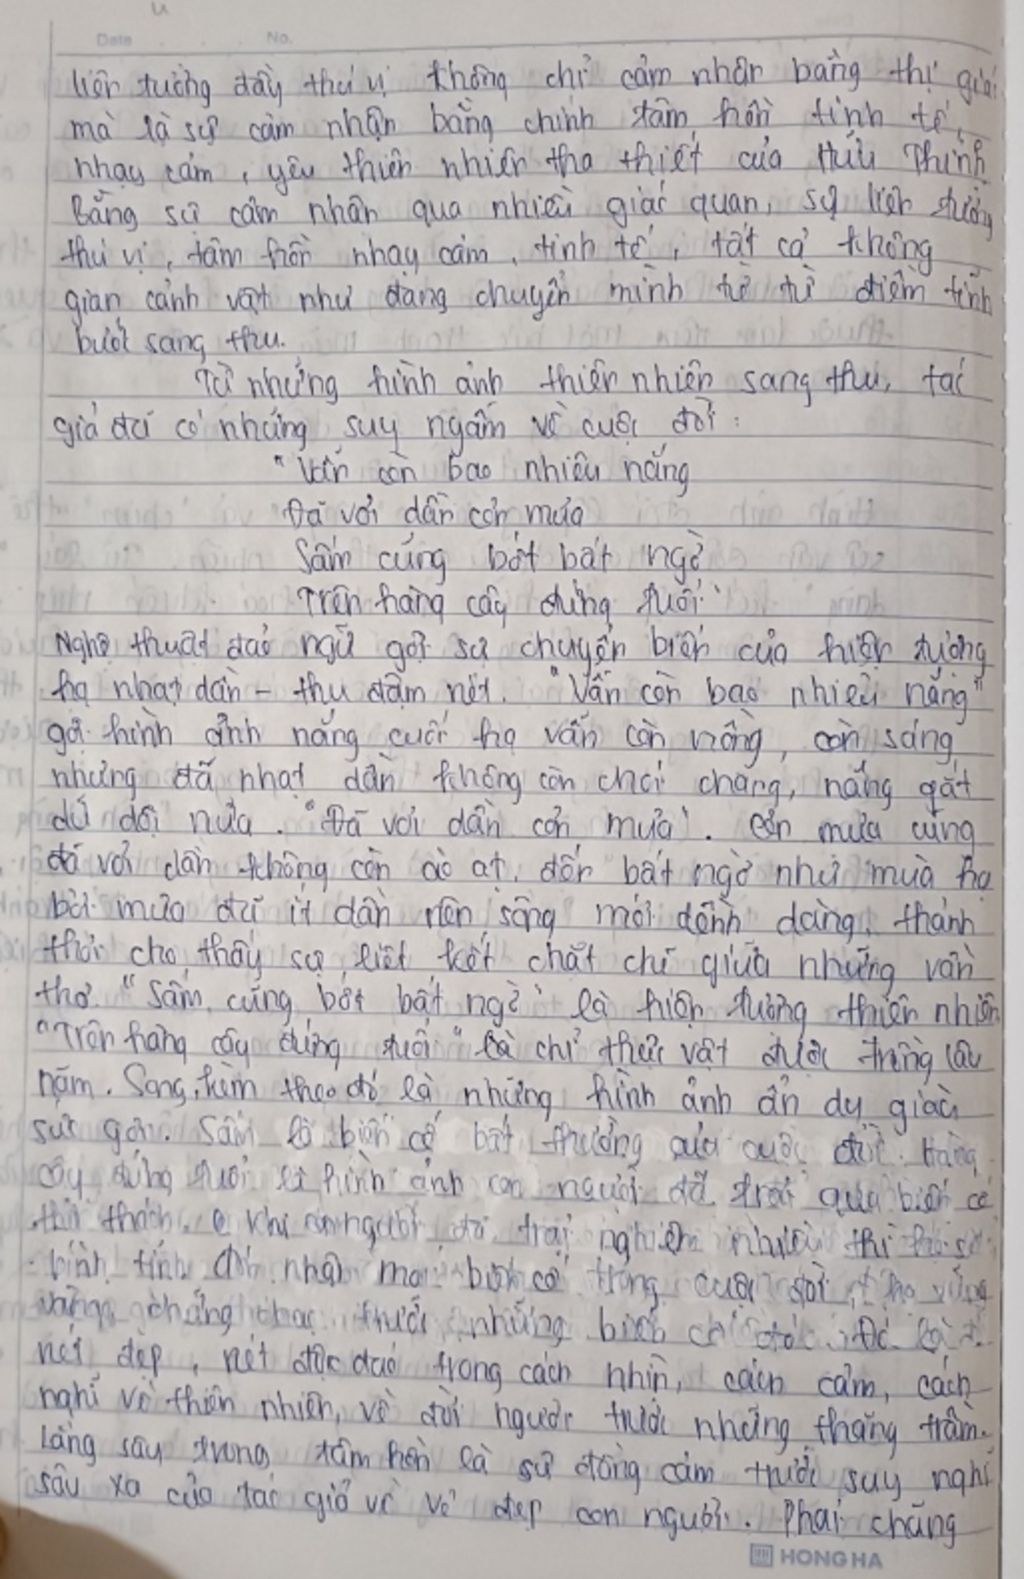 Date No.
liên tưởng đầy thú vị không chỉ cảm nhận bằng thị giác
mà là sự cảm nhận bằng chính tâm hồn tinh tế,
nhạy cảm, yêu thiên nhiên tha thiết của Hữu Thỉnh
Bằng sự cảm nhận qua nhiều giác quan, sự liên tưởng
thú vị, tâm hồn nhạy cảm, tinh tế, tất cả không
gian cảnh vật như đang chuyển mình từ từ điềm tĩnh
bước sang thu.
Từ những hình ảnh thiên nhiên sang thu, tác
giả đã có những suy ngẫm về cuộc đời:
"Vẫn còn bao nhiêu nắng
Đã vơi dần cơn mưa
Sấm cũng bớt bất ngờ
Trên hàng cây đứng tuổi"
Nghệ thuật đảo ngữ gợi sự chuyển biến của hiện tượng
hạ nhạt dần - thu đậm nét. "Vẫn còn bao nhiêu nắng"
gợi hình ảnh nắng cuối hạ vẫn còn nồng, còn sáng
nhưng đã nhạt dần không còn chói chang, nắng gắt
dữ dội nữa. "Đã vơi dần cơn mưa". Cơn mưa cũng
đã vơi dần không còn ào ạt, đến bất ngờ như mùa hạ
bởi mưa đã ít dần nên sông mới dềnh dàng, thảnh
thơi cho thấy sự liết kết chặt chẽ giữa những vần
thơ. "Sấm cũng bớt bất ngờ" là hiện tượng thiên nhiên
"Trên hàng cây đứng tuổi" là chỉ thực vật được trồng lâu
năm. Song, kèm theo đó là những hình ảnh ẩn dụ giàu
sức gợi. Sấm là biến cố bất thường của cuộc đời. Hàng
cây đứng tuổi là hình ảnh con người đã trải qua biến cố
thử thách. Khi con người đã trải nghiệm nhiều thì sẽ
bình tĩnh đón nhận mọi biến cố trong cuộc đời,
vàng, chẳng trước những biến cố đó. Đó là
nét đẹp, nét độc đáo trong cách nhìn, cách cảm, cách
nghĩ về thiên nhiên, về đời người trước những thăng trầm.
Lắng sâu trong tâm hồn là sự đồng cảm trước suy nghĩ
sâu xa của tác giả về vẻ đẹp con người. Phải chăng
HONG HA